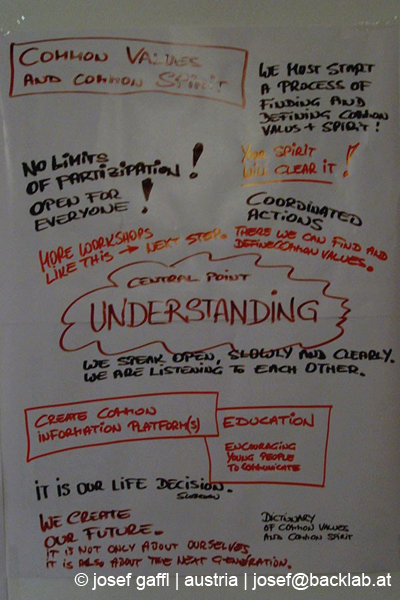 COMMON VALUES
AND COMMON SPIRIT
WE MUST START
A PROCESS OF
FINDING AND
DEFINING COMMON
VALUS + SPIRIT!
NO LIMITS
OF PARTIZIPATION!
OPEN FOR
EVERYONE!
YOUR SPIRIT
WILL CLEAR IT!
COORDINATED
ACTIONS
MORE WORKSHOPS
LIKE THIS → NEXT STEP.
THERE WE CAN FIND AND
DEFINE COMMON VALUES.
CENTRAL POINT
UNDERSTANDING
WE SPEAK OPEN, SLOWLY AND CLEARLY.
WE ARE LISTENING TO EACH OTHER.
CREATE COMMON
INFORMATION PLATFORM(S)
EDUCATION
ENCOURAGING
YOUNG PEOPLE
TO COMMUNICATE
IT IS OUR LIFE DECISION.
WE CREATE
OUR FUTURE.
IT IS NOT ONLY ABOUT OURSELVES
IT IS ALSO ABOUT THE NEXT GENERATION.
DICTIONARY
OF COMMON VALUES
AND COMMON SPIRIT
© josef gaffl | austria | josef@backlab.at